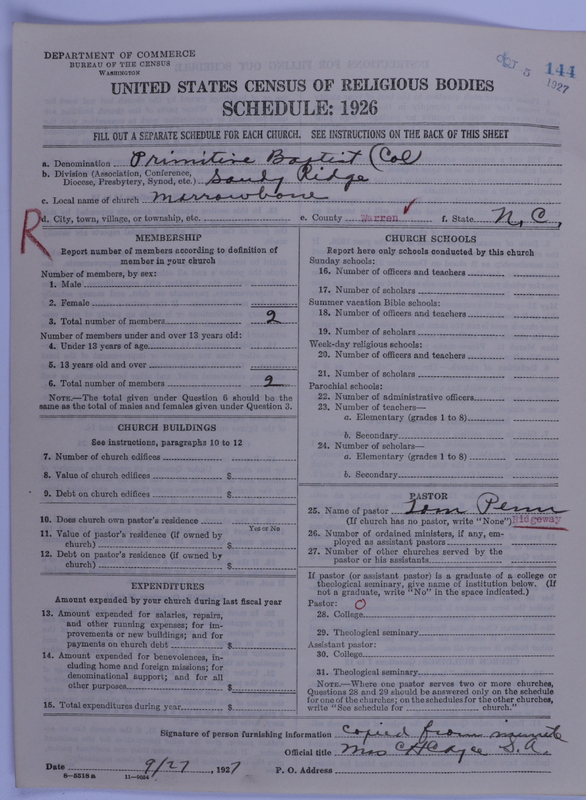 DEPARTMENT OF COMMERCE
BUREAU OF THE CENSUS
WASHINGTON
OCT 5 1927
144
UNITED STATES CENSUS OF RELIGIOUS BODIES
SCHEDULE: 1926
FILL OUT A SEPARATE SCHEDULE FOR EACH CHURCH. SEE INSTRUCTIONS ON THE BACK OF THIS SHEET
a. Denomination Primitive Baptist (Col)
b. Division (Association, Conference,
Diocese, Presbytery, Synod, etc.) Sandy Ridge
c. Local name of church Marrowbone
d. City, town, village, or township, etc. e. County Warren f. State N. C.
R
MEMBERSHIP
Report number of members according to definition of
member in your church
Number of members, by sex:
1. Male
2. Female
3. Total number of members 2
Number of members under and over 13 years old:
4. Under 13 years of age
5. 13 years old and over
6. Total number of members 2
NOTE.—The total given under Question 6 should be the
same as the total of males and females given under Question 3.
CHURCH BUILDINGS
See instructions, paragraphs 10 to 12
7. Number of church edifices
8. Value of church edifices $
9. Debt on church edifices $
10. Does church own pastor's residence
Yes or No
11. Value of pastor's residence (if owned by
church) $
12. Debt on pastor's residence (if owned by
church) $
EXPENDITURES
Amount expended by your church during last fiscal year
13. Amount expended for salaries, repairs,
and other running expenses; for im-
provements or new buildings; and for
payments on church debt $
14. Amount expended for benevolences, in-
cluding home and foreign missions; for
denominational support; and for all
other purposes $
15. Total expenditures during year $
CHURCH SCHOOLS
Report here only schools conducted by this church
Sunday schools:
16. Number of officers and teachers
17. Number of scholars
Summer vacation Bible schools:
18. Number of officers and teachers
19. Number of scholars
Week-day religious schools:
20. Number of officers and teachers
21. Number of scholars
Parochial schools:
22. Number of administrative officers
23. Number of teachers—
a. Elementary (grades 1 to 8)
b. Secondary
24. Number of scholars—
a. Elementary (grades 1 to 8)
b. Secondary
PASTOR
25. Name of pastor Tom Penn
(If church has no pastor, write "None") Ridgeway
26. Number of ordained ministers, if any, em-
ployed as assistant pastors
27. Number of other churches served by the
pastor or his assistants
If pastor (or assistant pastor) is a graduate of a college or
theological seminary, give name of institution below. (If
not a graduate, write "No" in the space indicated.)
Pastor: O
28. College
29. Theological seminary
Assistant pastor:
30. College
31. Theological seminary
NOTE.—Where one pastor serves two or more churches,
Questions 28 and 29 should be answered only on the schedule
for one of the churches; on the schedules for the other churches,
write "See schedule for church."
Signature of person furnishing information copied from minute
Official title Mrs C H Cayce S. A.
Date 9/27, 1927 P. O. Address
8-5518a 11-9024